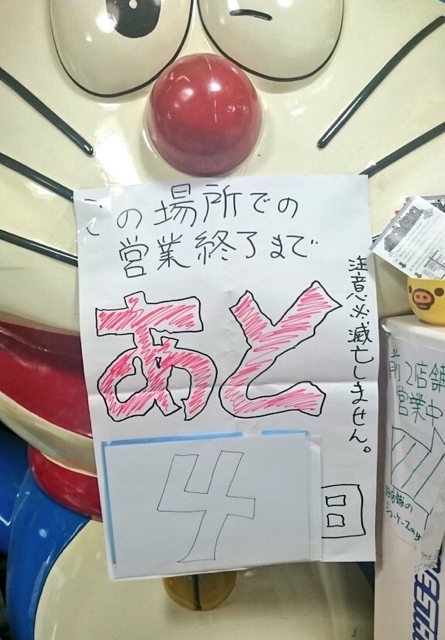 この場所での
営業終了まで
あと
4
日
注意※滅亡しません。
前2店舗
営業中